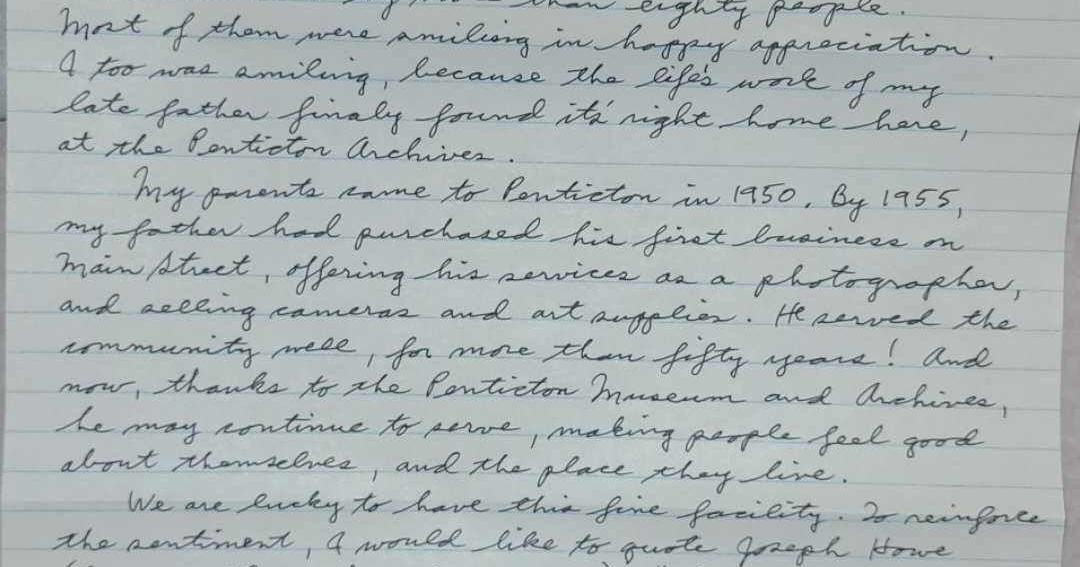 than eighty people.
Most of them were smiling in happy appreciation.
I too was smiling, because the life's work of my
late father finaly found it's right home here,
at the Penticton Archives.
My parents came to Penticton in 1950. By 1955,
my father had purchased his first business on
Main Street, offering his services as a photographer,
and selling cameras and art supplies. He served the
community well, for more than fifty years! And
now, thanks to the Penticton Museum and Archives,
he may continue to serve, making people feel good
about themselves, and the place they live.
We are lucky to have this fine facility. To reinforce
the sentiment, I would like to quote Joseph Howe